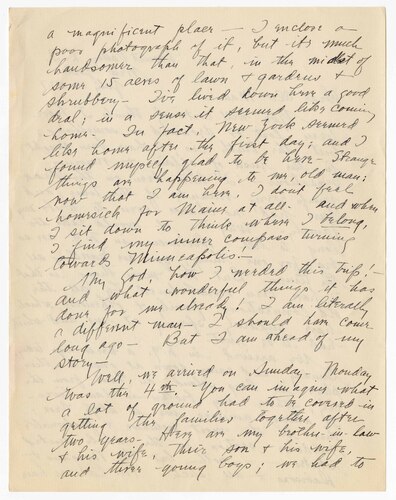 a magnificent place — I enclose a
poor photograph of it, but it's much
handsomer than that, in the midst of
some 15 acres of lawn & gardens &
shrubbery — I've lived down here a good
deal; in a sense it seemed like coming
home. In fact, New York seemed
like home after the first day; and I
found myself glad to be here — Strange
things are happening to me, old man;
now that I am here, I don't feel
homesick for Maine at all. And when
I sit down to think where I belong,
I find my inner compass turning
towards Minneapolis! —
My God, how I needed this trip! —
and what wonderful things it has
done for me already! I am literally
a different man — I should have come
long ago — But I am ahead of my
story —
Well, we arrived on Sunday — Monday
was the 4th. You can imagine what
a lot of ground had to be covered in
getting the families together after
two years — Here are my brother-in-law
& his wife, their son & his wife,
and three young boys; we had to